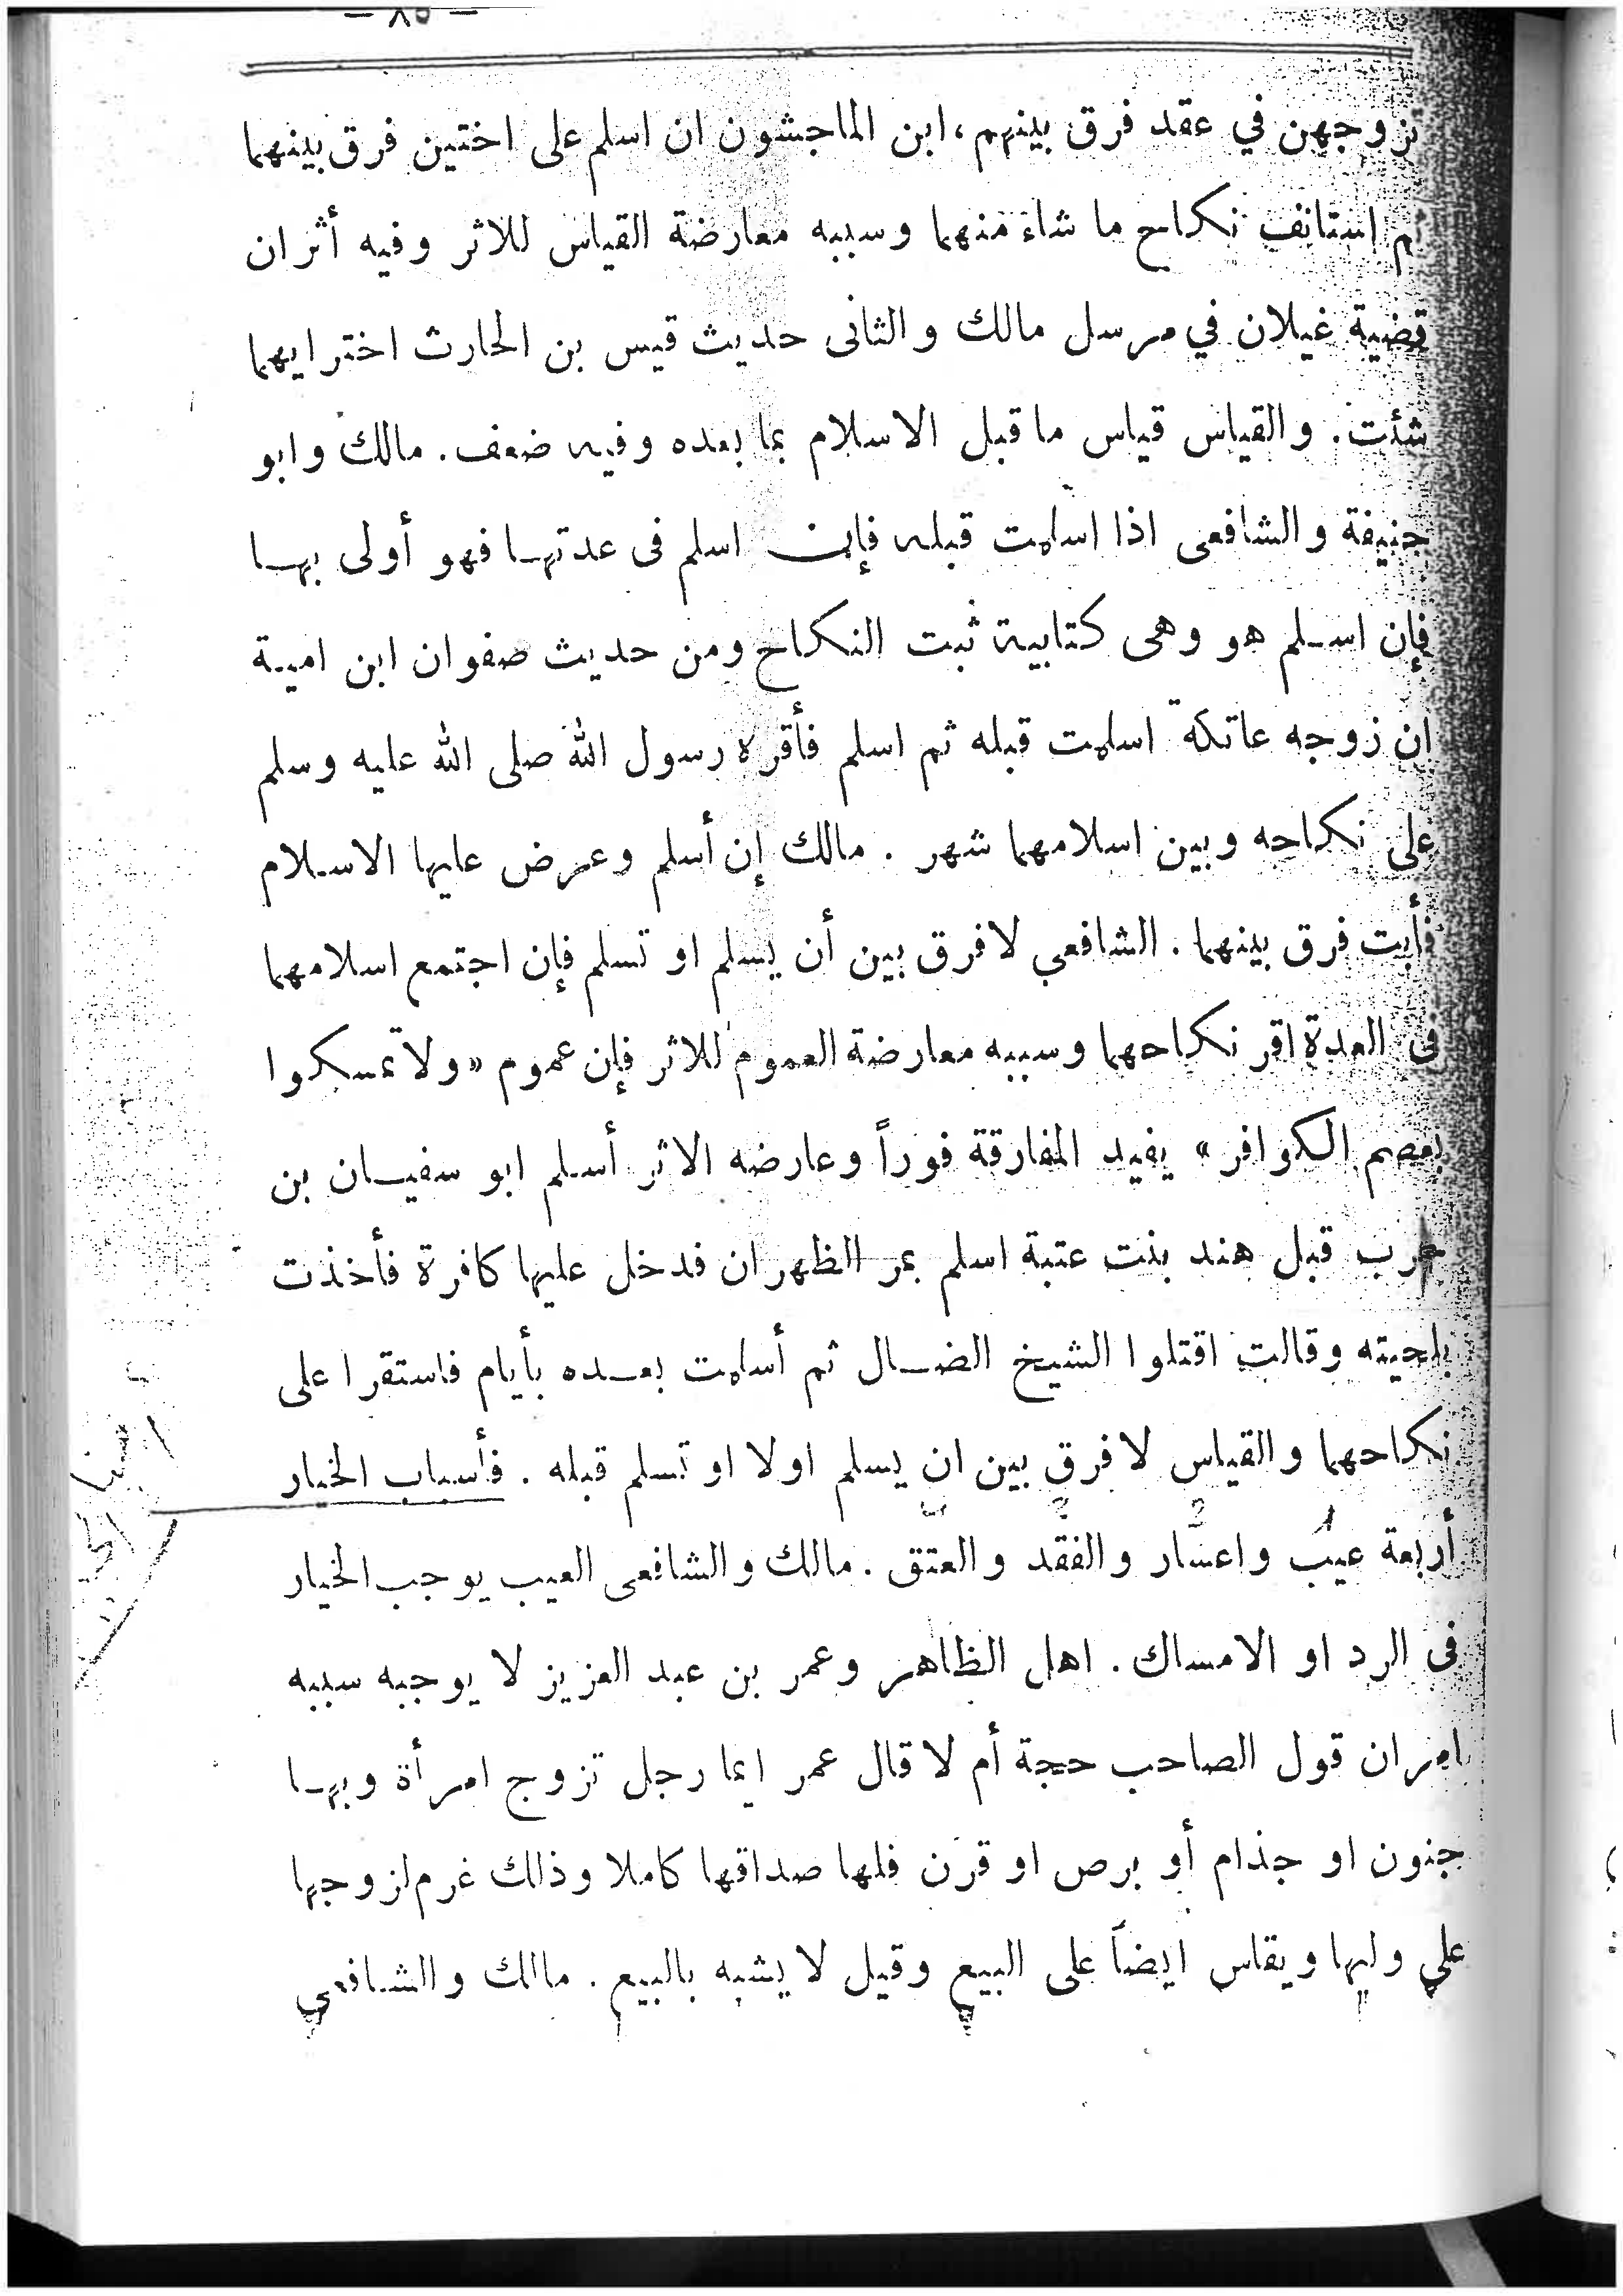 — ٨٥ —
تزوجهن في عقد فرق بينهم، ابن الماجشون ان اسلم على اختين فرق بينهما
ثم استانف نكاح ما شاء منهما وسببه معارضة القياس للاثر وفيه أثران
قضية غيلان في مرسل مالك والثانى حديث قيس بن الحارث اختر ايهما
شئت. والقياس قياس ما قبل الاسلام بما بعده وفيه ضعف. مالك وابو
حنيفة والشافعى اذا اسلمت قبله فإن اسلم فى عدتها فهو أولى بها
فإن اسلم هو وهى كتابية ثبت النكاح ومن حديث صفوان ابن امية
ان زوجه عاتكة اسلمت قبله ثم اسلم فأقره رسول الله صلى الله عليه وسلم
على نكاحه وبين اسلامهما شهر . مالك إن أسلم وعرض عليها الاسلام
فأبت فرق بينهما . الشافعي لا فرق بين أن يسلم او تسلم فإن اجتمع اسلامهما
فى العدة اقر نكاحهما وسببه معارضة العموم للاثر فإن عموم «ولا تمسكوا
بعصم الكوافر» يفيد المفارقة فوراً وعارضه الاثر أسلم ابو سفيان بن
حرب قبل هند بنت عتبة اسلم بمر الظهران فدخل عليها كافرة فأخذت
بلحيته وقالت اقتلوا الشيخ الضال ثم أسلمت بعده بأيام فاستقرا على
نكاحهما والقياس لا فرق بين ان يسلم اولا او تسلم قبله . فأسباب الخيار
أربعة عيب واعسار والفقد والعتق . مالك والشافعى العيب يوجب الخيار
فى الرد او الامساك . اهل الظاهر وعمر بن عبد العزيز لا يوجبه سببه
امران قول الصاحب حجة أم لا قال عمر ايما رجل تزوج امرأة وبها
جنون او جذام أو برص او قرن فلها صداقها كاملا وذلك غرم لزوجها
على وليها ويقاس ايضاً على البيع وقيل لا يشبه بالبيع . مالك والشافعي